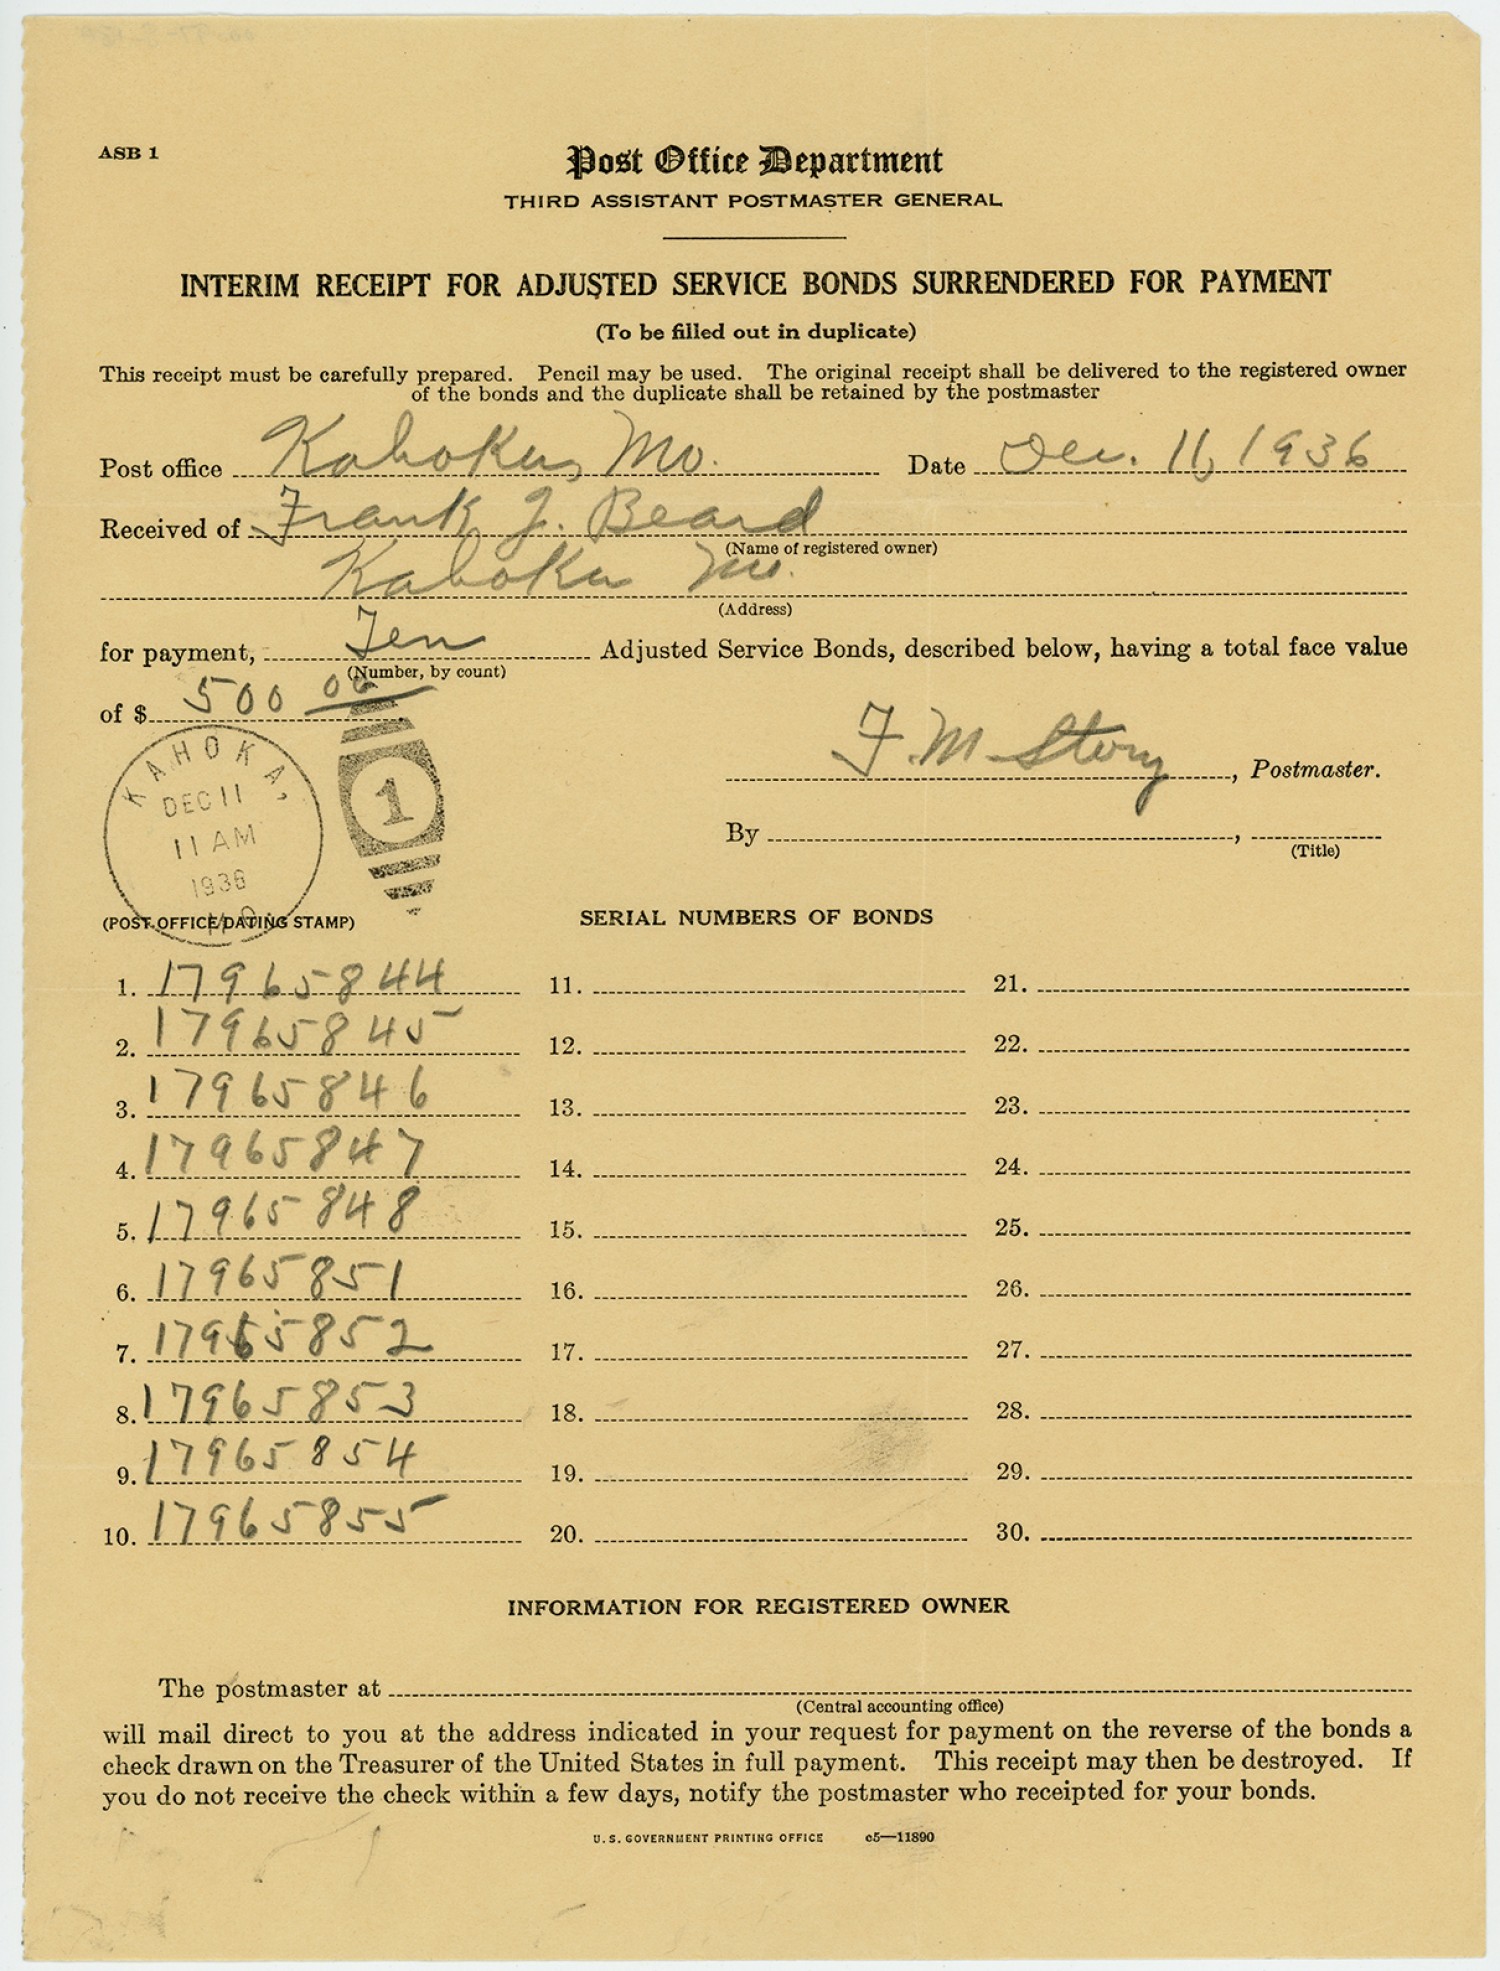 ASB 1
Post Office Department
THIRD ASSISTANT POSTMASTER GENERAL
INTERIM RECEIPT FOR ADJUSTED SERVICE BONDS SURRENDERED FOR PAYMENT
(To be filled out in duplicate)
This receipt must be carefully prepared. Pencil may be used. The original receipt shall be delivered to the registered owner
of the bonds and the duplicate shall be retained by the postmaster
Post office Kahoka, Mo. Date Dec. 11, 1936
Received of Frank J. Beard
(Name of registered owner)
Kahoka Mo.
(Address)
for payment, Ten Adjusted Service Bonds, described below, having a total face value
(Number, by count)
of $ 500 00
F. M. Story, Postmaster.
By , 
(Title)
KAHOKA,
DEC 11
11 AM
1936
MO.
1
(POST OFFICE DATING STAMP) SERIAL NUMBERS OF BONDS
1. 17965844 11. 21.
2. 17965845 12. 22.
3. 17965846 13. 23.
4. 17965847 14. 24.
5. 17965848 15. 25.
6. 17965851 16. 26.
7. 17965852 17. 27.
8. 17965853 18. 28.
9. 17965854 19. 29.
10. 17965855 20. 30.
INFORMATION FOR REGISTERED OWNER
The postmaster at
(Central accounting office)
will mail direct to you at the address indicated in your request for payment on the reverse of the bonds a
check drawn on the Treasurer of the United States in full payment. This receipt may then be destroyed. If
you do not receive the check within a few days, notify the postmaster who receipted for your bonds.
U. S. GOVERNMENT PRINTING OFFICE c5—11890